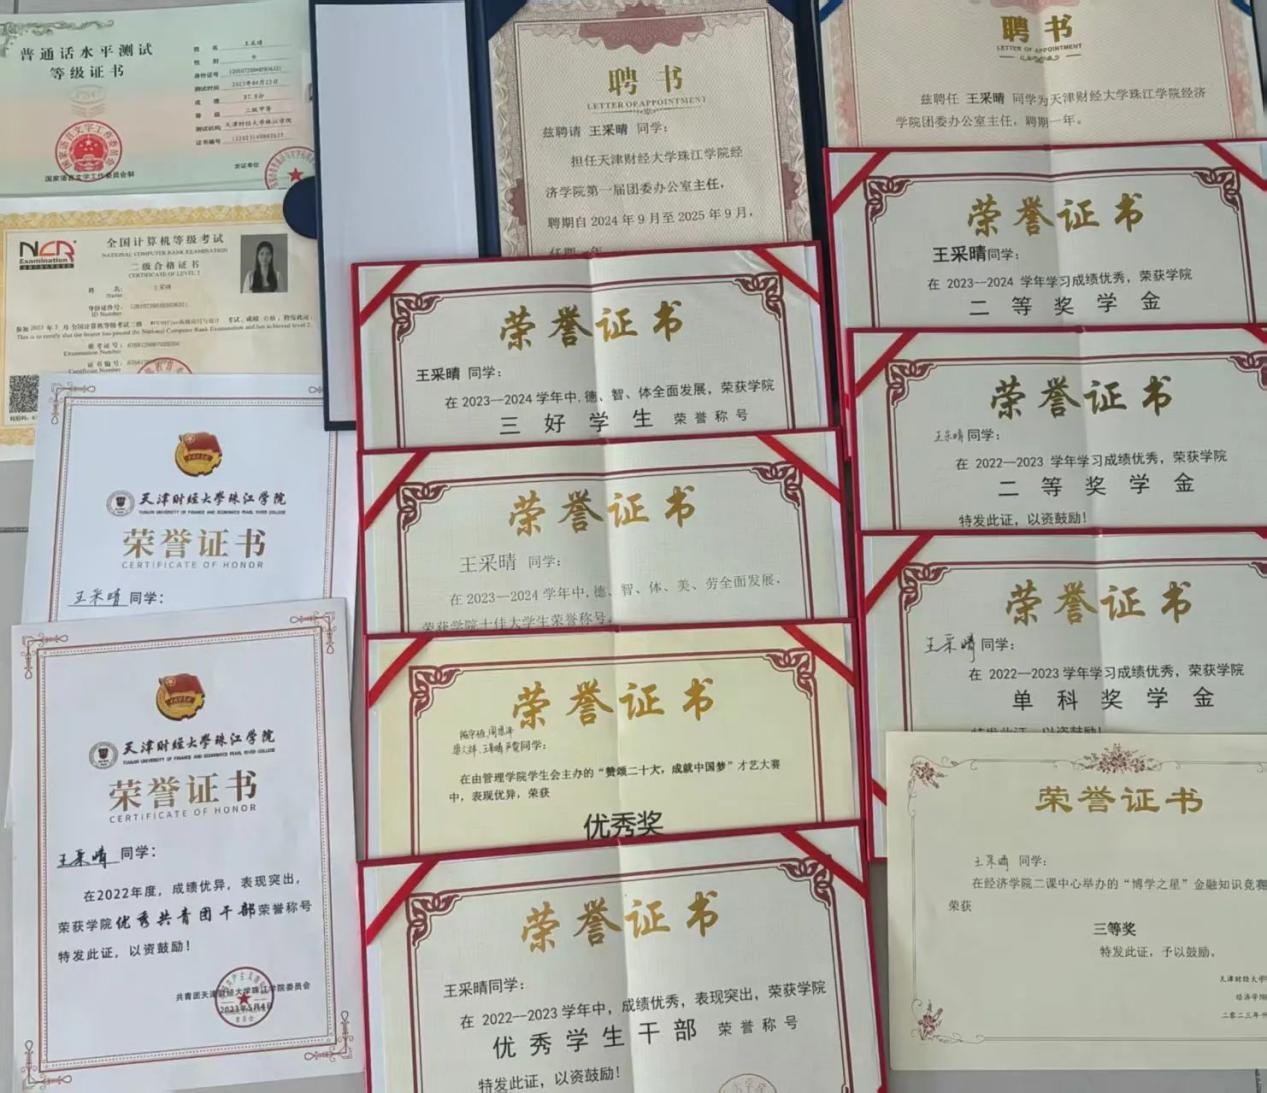 普通话水平测试
等级证书
姓 名 王采晴
性 别 女
身份证号
测试时间
成 绩 87.8分
等 级 二级甲等
测试机构 天津财经大学珠江学院
证书编号
发证单位
国家语言文字工作委员会制
NCR
Examination
全国计算机等级考试
NATIONAL COMPUTER RANK EXAMINATION
二级合格证书
CERTIFICATE OF LEVEL 2
姓 名: 王采晴
Name
身份证件号:
ID Number
准考证号:
Examination Number
证书编号:
Certificate Number
天津财经大学珠江学院
TIANJIN UNIVERSITY OF FINANCE AND ECONOMICS PEARL RIVER COLLEGE
荣誉证书
CERTIFICATE OF HONOR
王采晴 同学:
天津财经大学珠江学院
TIANJIN UNIVERSITY OF FINANCE AND ECONOMICS PEARL RIVER COLLEGE
荣誉证书
CERTIFICATE OF HONOR
王采晴 同学:
在2022年度,成绩优异,表现突出,
荣获学院优秀共青团干部荣誉称号
特发此证,以资鼓励!
共青团天津财经大学珠江学院委员会
2023年5月4日
聘书
LETTER OF APPOINTMENT
兹聘请 王采晴 同学:
担任天津财经大学珠江学院经
济学院第一届团委办公室主任,
聘期自2024年9月至2025年9月,
任期一年
荣誉证书
王采晴 同学:
在2023—2024学年中,德、智、体全面发展,荣获学院
三好学生 荣誉称号
荣誉证书
王采晴 同学:
在2023—2024学年中,德、智、体、美、劳全面发展,
荣获学院十佳大学生荣誉称号。
荣誉证书
同学:
在由管理学院学生会主办的“赞颂二十大,成就中国梦”才艺大赛
中,表现优异,荣获
优秀奖
荣誉证书
王采晴同学:
在 2022—2023 学年中,成绩优秀,表现突出,荣获学院
优秀学生干部 荣誉称号
特发此证,以资鼓励!
聘书
LETTER OF APPOINTMENT
兹聘任 王采晴 同学为天津财经大学珠江学院经济
学院团委办公室主任,聘期一年。
荣誉证书
王采晴同学:
在 2023—2024 学年学习成绩优秀,荣获学院
二等奖学金
荣誉证书
王采晴同学:
在 2022—2023 学年学习成绩优秀,荣获学院
二等奖学金
特发此证,以资鼓励!
荣誉证书
王采晴 同学:
在 2022—2023 学年学习成绩优秀,荣获学院
单科奖学金
特发此证,以资鼓励!
荣誉证书
王采晴 同学:
在经济学院二课中心举办的“博学之星”金融知识竞赛
荣获
三等奖
特发此证,予以鼓励。
天津财经大学
经济学院
二零二三年